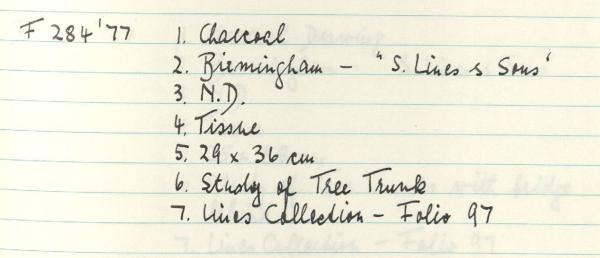 F 284'77 1. Charcoal
2. Birmingham – "S. Lines & Sons'
3. N.D.
4. Tissue
5. 29 x 36 cm
6. Study of Tree Trunk
7. Lines Collection – Folio 97